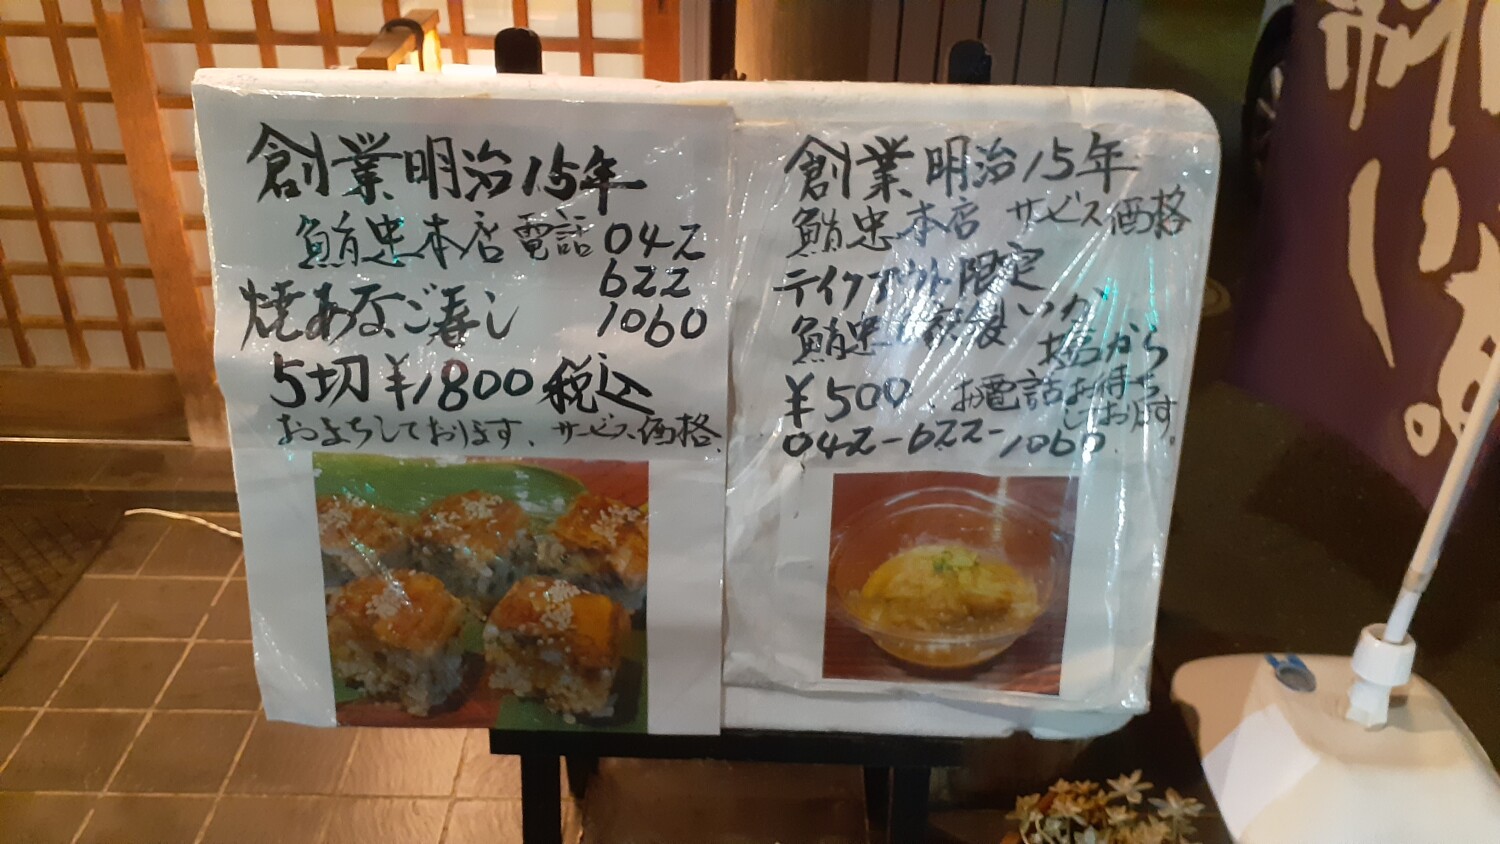 創業明治15年
鮨忠本店 電話 042
622
1060
焼あなご寿し
5切 ¥1800 税込
おまちしております、サービス価格
創業明治15年
鮨忠本店 サービス価格
テイクアウト限定
鮨忠 自家製 いか
塩から
¥500、お電話お待ち
しております。
042-622-1060